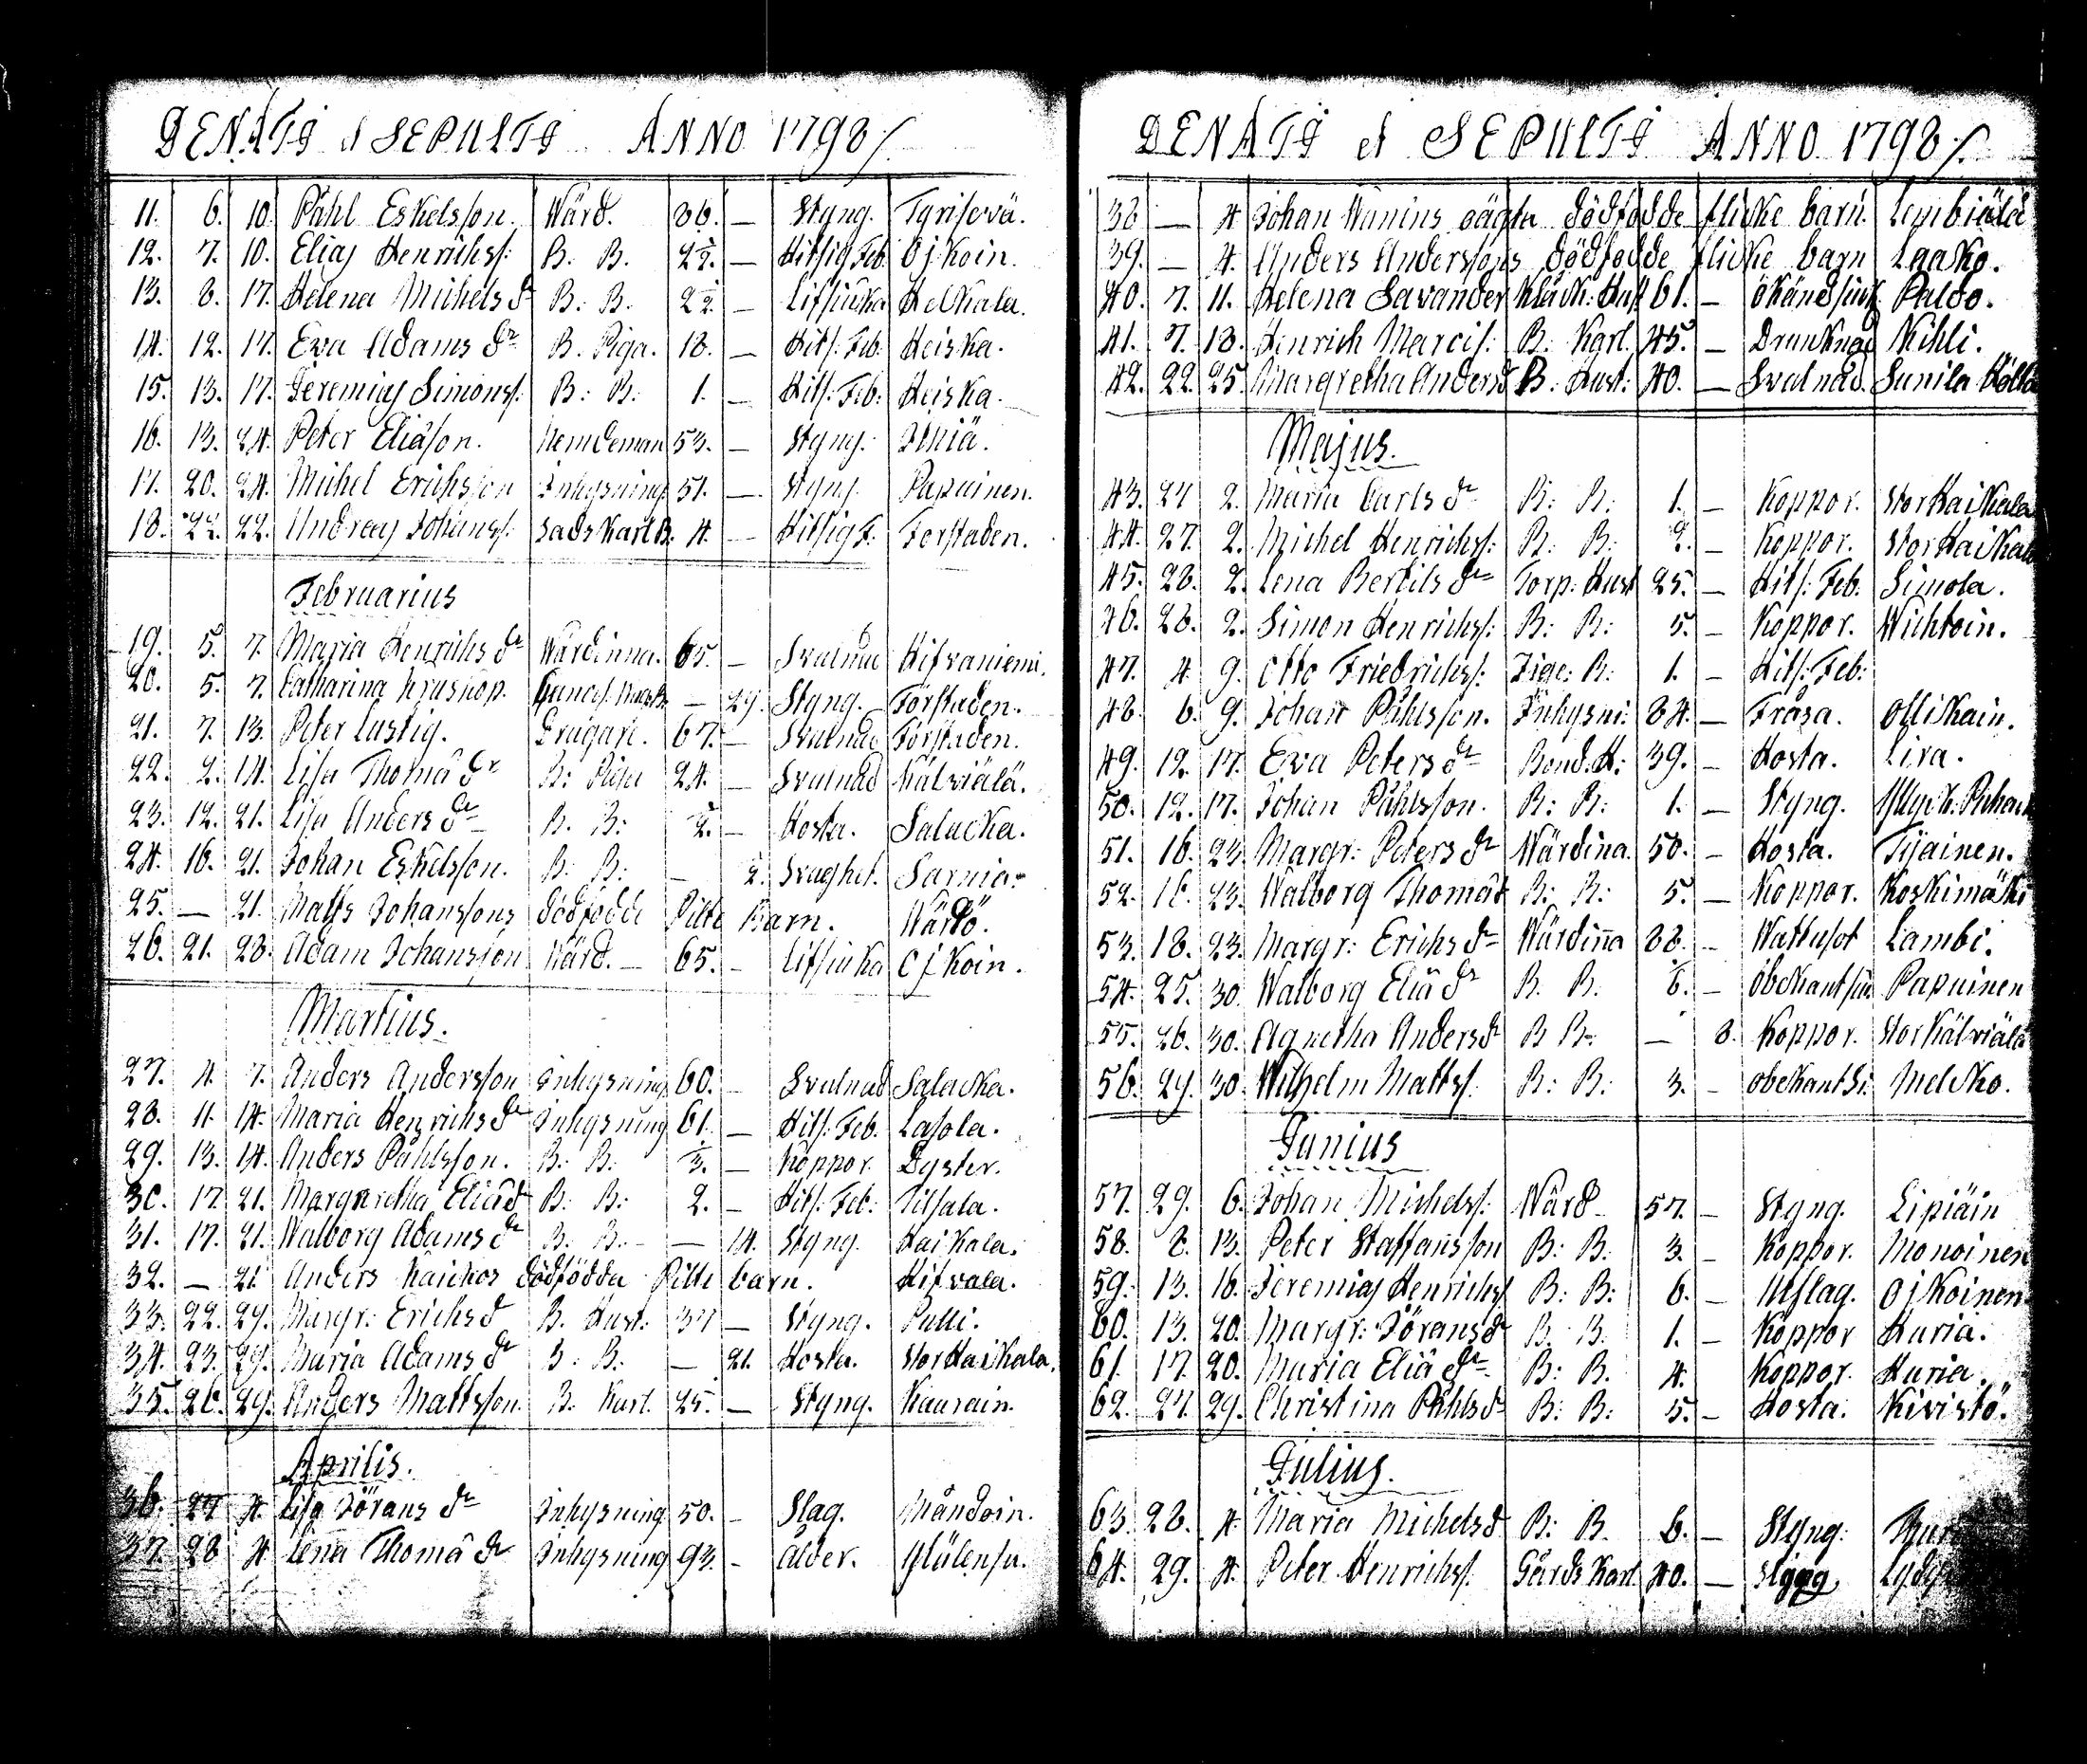 DENATI & SEPULTI ANNO 1798/.
11. 6. 10. Påhl Eskelsson. Wärd. 86. — Styng. Tyrisevä.
12. 7. 10. Elias Henrichss: B. B. 2½. — Hitsig Feb. Ojkoin.
13. 8. 17. Helena Michels dr B. B. 2½. — Lifsiuka Helkala.
14. 12. 17. Eva Adams dr B. Piga. 18. — Hits: Feb: Heiska.
15. 13. 17. Jeremias Simonss: B: B: 1. — Hits: Feb: Heiska.
16. 13. 24. Peter Eliäson. Hemdeman 53. — Styng. Iluiä.
17. 20. 24. Michel Erichsson Inhysning 51. — Styng. Papuinen.
18. 22. 22. Andreas Johanss: Sads Karl B. 4. — Hitsig F: Forstaden.
Februarius
19. 5. 7. Maria Henrichs dr Wärdinna. 65. — Svulnad Hifvaniemi.
20. 5. 7. Catharina Kruskop. — 29. Styng. Förstaden.
21. 7. 13. Peter Lustig. Dragare. 67. — Svulnad Förstaden.
22. 2. 14. Lisa Thomä dr B: 24. — Svulnad Kälviälä.
23. 12. 21. Lisa Anders dr B. B: ½. — Hosta. Salacka.
24. 16. 21. Johan Eskelsson. B: B: — 2. Svaghet. Sarvia.
25. — 21. Matts Johanssons dödfödde Pilte Barn. Wärdö.
26. 21. 28. Adam Johansson Wärd. — 65. — Lifsiuka Ojkoin.
Martius.
27. 4. 7. Anders Andersson Inhysning 60. — Svulnad Salacka.
28. 11. 14. Maria Henrichs dr Inhysning 61. — Hits: Feb. Lasola.
29. 13. 14. Anders Påhlsson. B: B: — Koppor. Dyster.
30. 17. 21. Margaretha Eliäd B: B: 2. — Hits: Feb: Tilsala.
31. 17. 21. Walborg Adams dr B. B. — 14. Styng. Haikala.
32. — 21 Anders Kaickos dödfödda Pilte barn. Hifvala.
33. 22. 29. Margr: Erichs d B. Hust: 37 — Styng. Pulli.
34. 23. 29. Maria Adams dr B. B: — 21. Hosta. StorHaikala.
35. 26. 29. Anders Mattsson. B. Karl. 25. — Styng. Kaurain.
Aprilis.
36. 27 4. Lisa Görans dr Inhysning 50. — Slag. Måndoin.
37. 28 4 Lena Thomä dr Inhysning 93. — Ålder.
DENATI et SEPULTI ANNO 1798/.
38 — 4 Johan Wanins oägta dödfödde flicke barn.
39. — 4. Anders Anderssons dödfödde flicke barn Laako.
40. 7. 11. Helena Savander Kläck: Hust 61. — okänd siuk Paldo.
41. 7. 18. Henrich Marcis: B: Karl. 45. — Drunknad Kihli.
42. 22. 25. Margretha Andersd B. Hust: 40. — Svulnad. Sunila Hölla
Majus.
43. 27 2. Maria Carls dr B: B: 1. — Koppor. StorHaikala
44. 27. 2. Michel Henrichss: B: B: 2. — Koppor. StorHaikala
45. 28. 2. Lena Bertils dr Torp: Hust 25. — Hits: Feb: Simola.
46. 28. 2. Simon Henrichss: B: B: 5. — Koppor. Wichtoin.
47. 4 9. Otto Friedrichss: Zige: B: 1. — Hits: Feb:
48. 6. 9. Johan Påhlsson. Inhysni: 84. — Fråsa. Ollikain.
49. 12. 17. Eva Peters dr Bond. H: 39. — Hosta. Lira.
50. 12. 17. Johan Påhlsson. B: B: 1. — Styng.
51. 16. 23. Margr: Peters dr Wärdina. 50. — Hosta. Tijainen.
52. 16. 23. Walborg Thomäd B: B: 5. — Koppor. Koskimäki
53. 18. 23. Margr: Erichs dr Wärdiña 88. — Wattusot Lambi.
54. 25. 30. Walborg Eliä dr B. B. — Papuinen
55. 26. 30. Agnetha Anders dr B B: — 8. Koppor. StorKälviälä
56. 29. 30. Wilhelm Mattss: B: B: 3. — obekant si: Melcko.
Junius
57. 29. 6. Johan Michelss: Wärd 57. — Styng. Lipiäin
58. 8. 13. Peter Staffansson B: B: 3. — Koppor. Monoinen
59. 13. 16. Jeremias Henrichss B: B: 6. — Utslag. Ojkoinen
60. 13. 20. Margr: Görans dr B: B. 1. — Koppor Huria.
61. 17. 20. Maria Eliä dr B: B. 4. Koppor. Huria.
62. 27. 29. Christina Påhls dr B: B: 5. — Hosta. Kivistö.
Julius.
63. 28. 4. Maria Michels d B: B. 6. — Styng.
64. 29. 4. Peter Henrichss: Gårds Karl. 40. — Styng